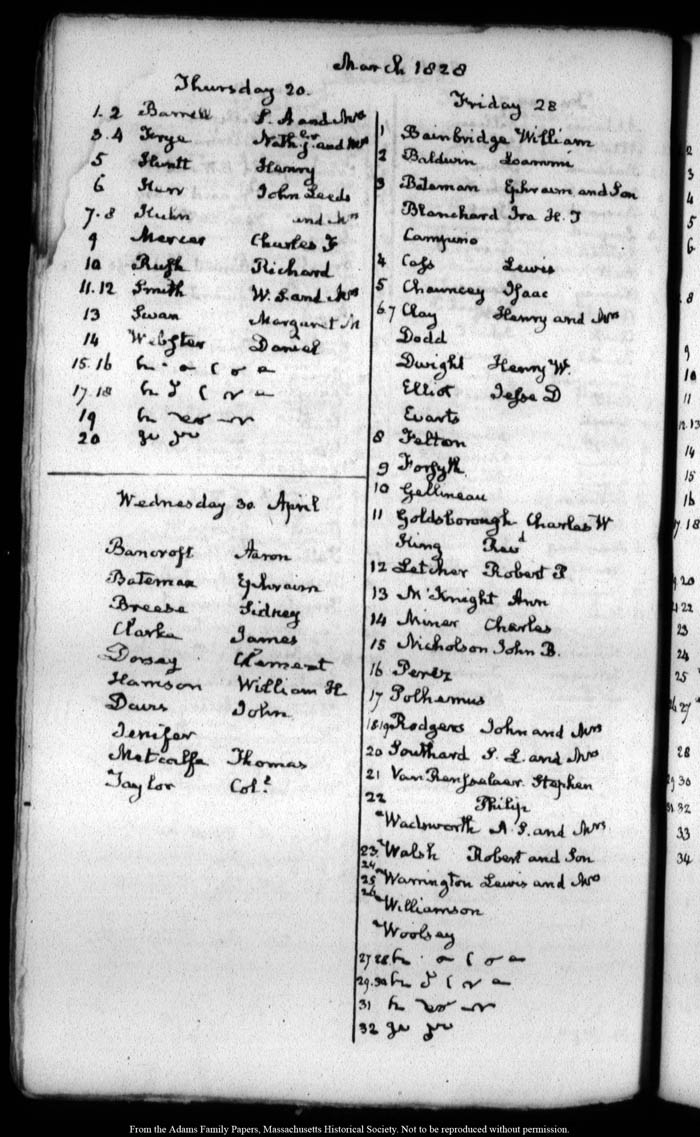 March 1828
Thursday 20.
1. 2 Barrell S. A and Mrs
3. 4 Frye Nath.l and Mrs
5 Huntt Henry
6 Kerr John Leeds
7. 8 Kuhn and Mrs
9 Mercer Charles F
10 Rush Richard
11. 12 Smith W. S. and Mrs
13 Swan Margaret M
14 Webster Daniel
15. 16
17. 18
19
20
Wednesday 30 April
Bancroft Aaron
Bateman Ephraim
Breese Sidney
Clarke James
Dorsay Clement
Harrison William H.
Davis John
Jenifer
Metcalfe Thomas
Taylor Col.l
Friday 28
1 Bainbridge William
2 Baldwin Loammi
3 Bateman Ephraim and Son
Blanchard Ira H. T
Campuno
4 Cass Lewis
5 Chauncey Isaac
6. 7 Clay Henry and Mrs
Dodd
Dwight Henry W.
Elliot Jesse D
Evarts
8 Felton
9 Forsyth
10 Gellineau
11 Goldsborough Charles W
King Revd
12 Letcher Robert P.
13 McKnight Ann
14 Miner Charles
15 Nicholson John B.
16 Perez
17 Polhemus
18 19 Rodgers John and Mrs
20 Southard S. L. and Mrs
21 Van Rensselaer Stephen
22 Philip
Wadsworth A. S. and Mrs
23. Walsh Robert and Son
24
25 Warrington Lewis and Mrs
26 Williamson
Woolsey
27 28
29. 30
31
32
2
3
4
5
6
8
9
10
11
12. 13
14
15
16
17. 18
20
22
23
24
25
27
28
29 30
31. 32
33
34
From the Adams Family Papers, Massachusetts Historical Society. Not to be reproduced without permission.